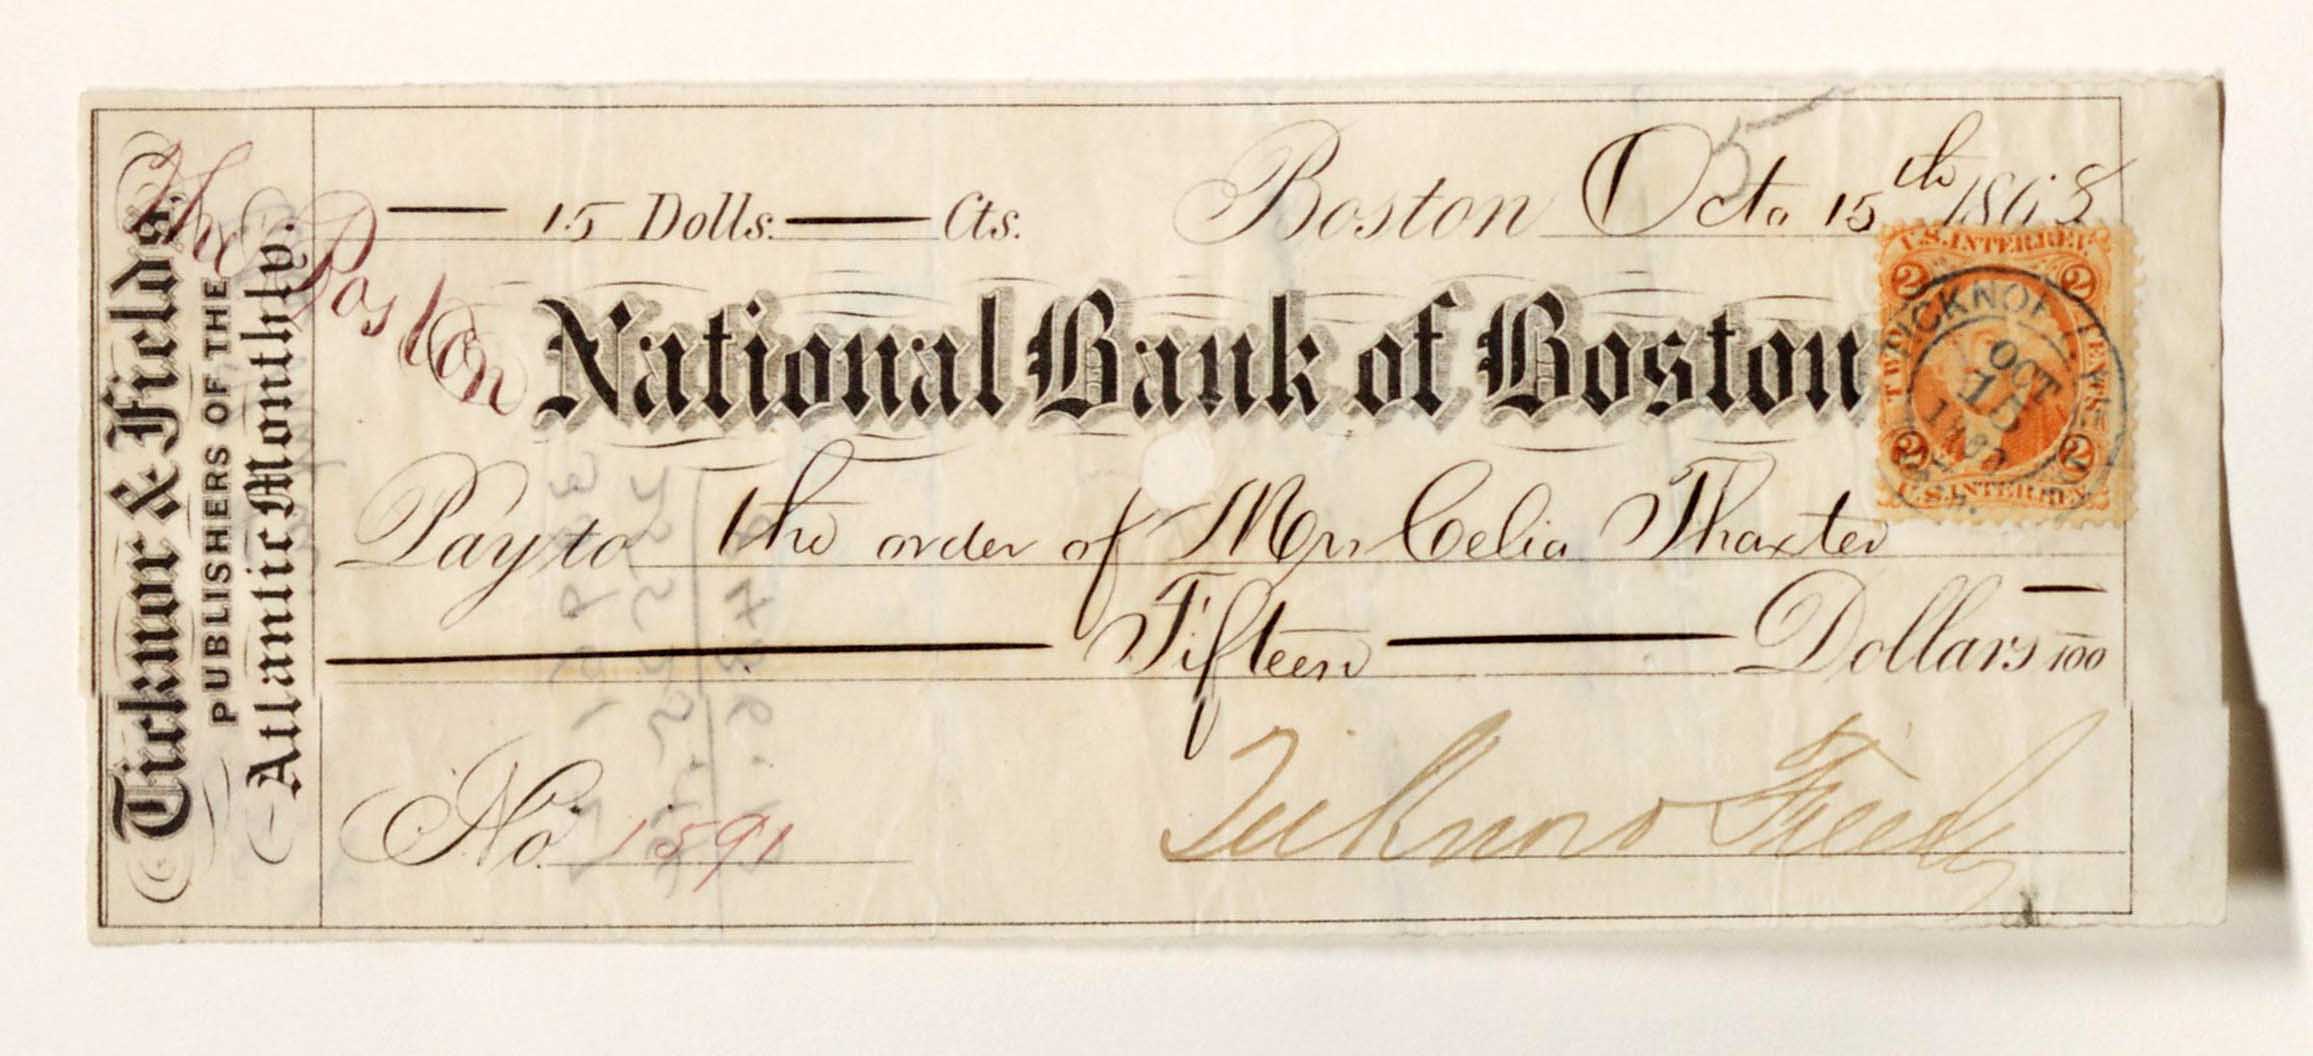 Ticknor & Fields,
PUBLISHERS OF THE
Atlantic Monthly.
15 Dolls. Cts.
Boston Oct. 15th 1863
The Boston
National Bank of Boston
Pay to the order of Mrs Celia Thaxter
Fifteen Dollars 100
No. 1591
Ticknor & Fields
U.S. INTER. REV.
2 2
TICKNOR
OCT
15
2 2
U.S. INTER. REV.